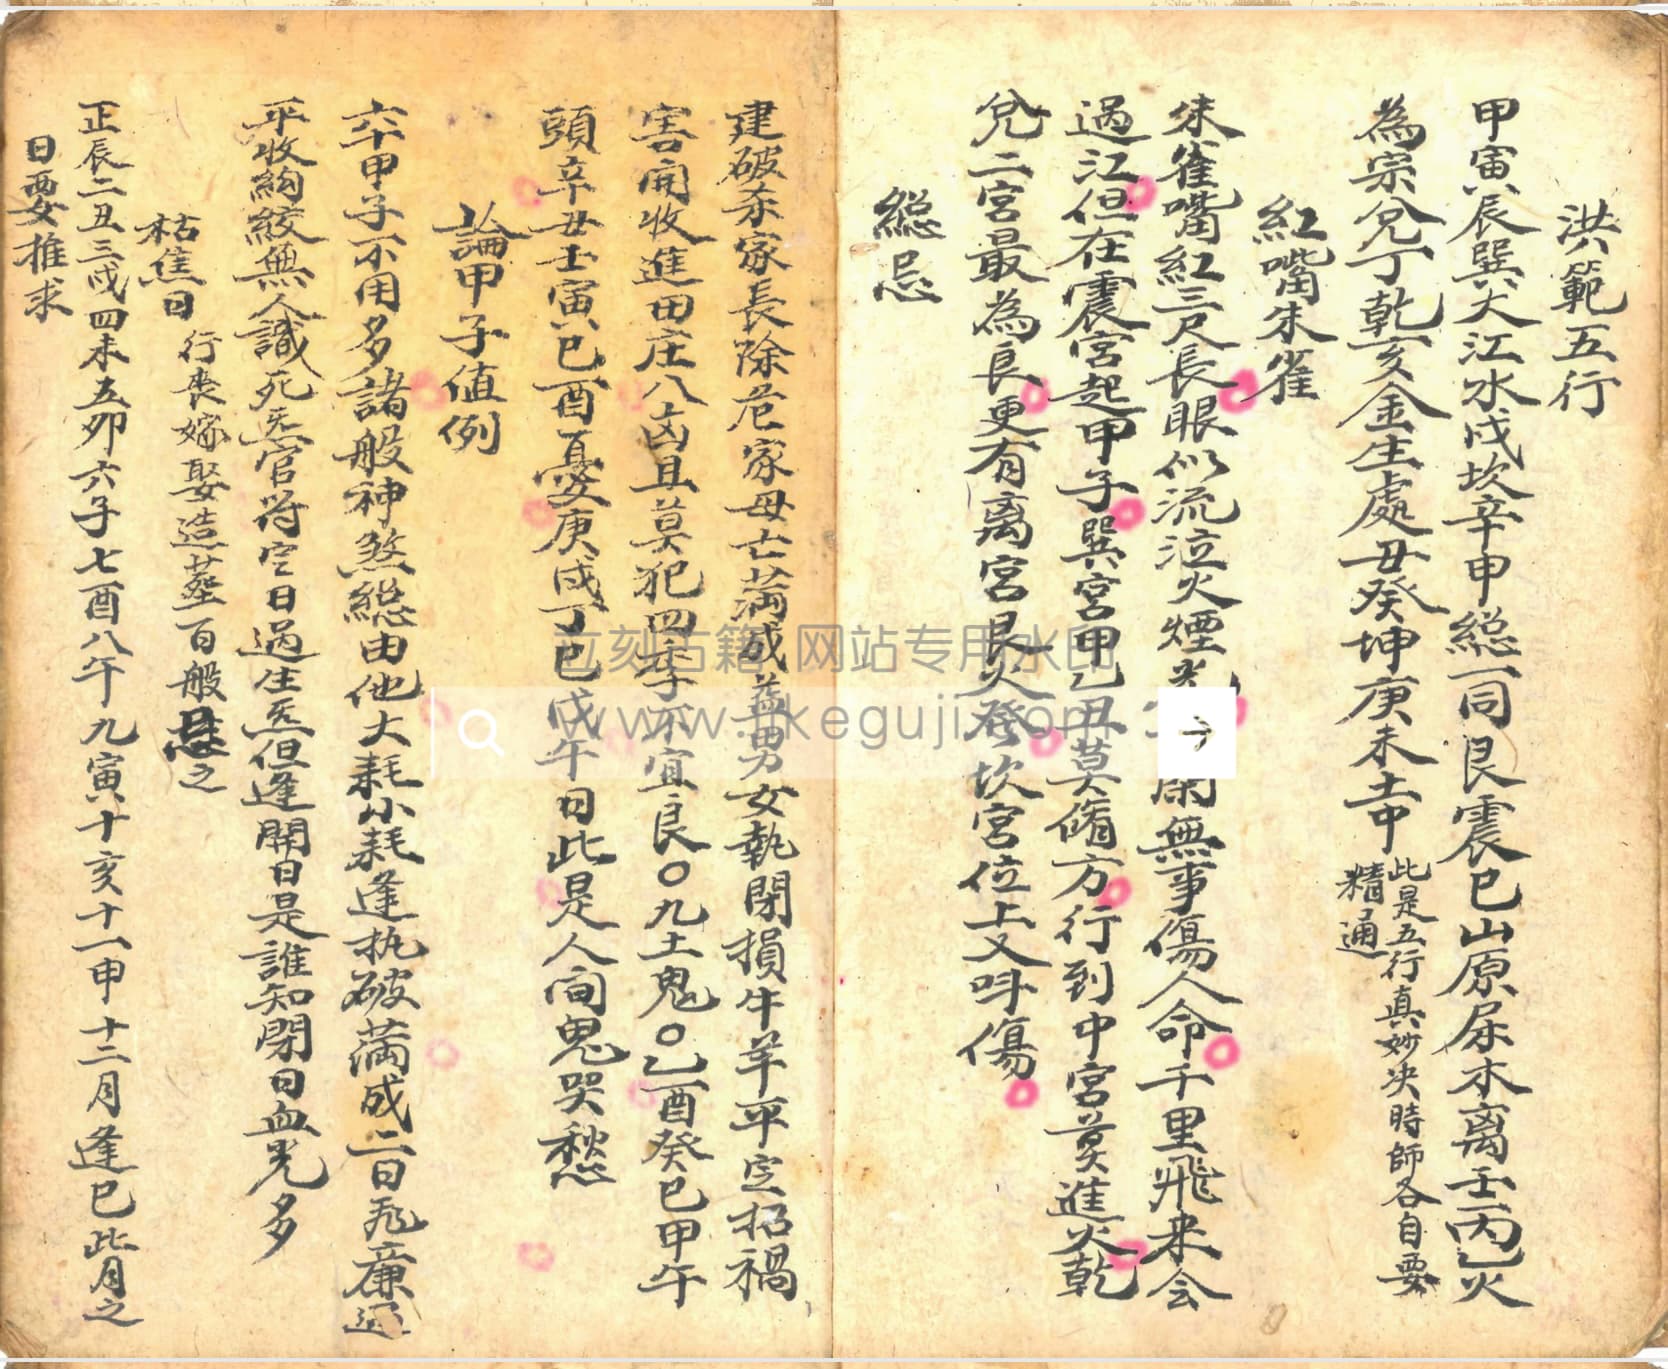 洪範五行
甲寅辰巽大江水戌坎辛申緫一同艮震巳山原屬木离壬丙乙火
為宗兌丁乾亥金生處丑癸坤庚未土中
此是五行真妙决時師各自要
精通
紅嘴朱雀
朱雀嘴紅三尺長眼似流泣火煙光 閑無事傷人命千里飛来会
過江但在震宮起甲子巽宮甲乙丑莫脩方行到中宮莫進火乾
兌二宮最為良更有离宮艮火発坎宮位上又叫傷
緫忌
建破杀家長除危家母亡満成益男女執閉損牛羊平定招禍
害開收進田庄八凶且莫犯四季不宜良〇九土鬼〇乙酉癸巳甲午
頭辛丑壬寅巳酉憂庚戌丁巳戊午日此是人间鬼哭愁
論甲子值例
六十甲子不用多諸般神煞緫由他大耗小耗逢执破满成二日死廉
平收絢絞無人識死炁官符定日過生炁但逢開日是誰知閉日血光多
枯焦日
行丧嫁娶造塟百般忌之
正辰二丑三戌四未五卯六子七酉八午九寅十亥十一申十二月逢巳此月之
日要推求
立刻古籍 网站专用水印
www.likeguji.com